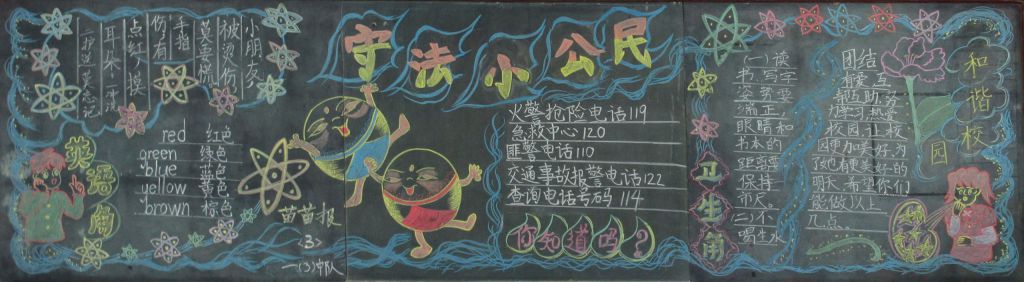 守法小公民
小朋友，
被烫伤，
莫要慌，
手指
伤有
点红，摸
耳朵
英语角
red 红色
green 绿色
blue 蓝色
yellow 黄色
brown 棕色
苗苗报
3
一(3)中队
火警抢险电话119
急救中心120
匪警电话110
交通事故报警电话122
查询电话号码114
你知道吗？
卫生角
(一)读
书、写字
姿势要
端正，
眼睛和
书本的
距离要
保持
一市尺。
(二)不
喝生水
和谐校园
团结
友爱、互
帮互助、
学习
校园
园更加美好，为
了她有更美好的
明天，希望你们
能做以上
几点。